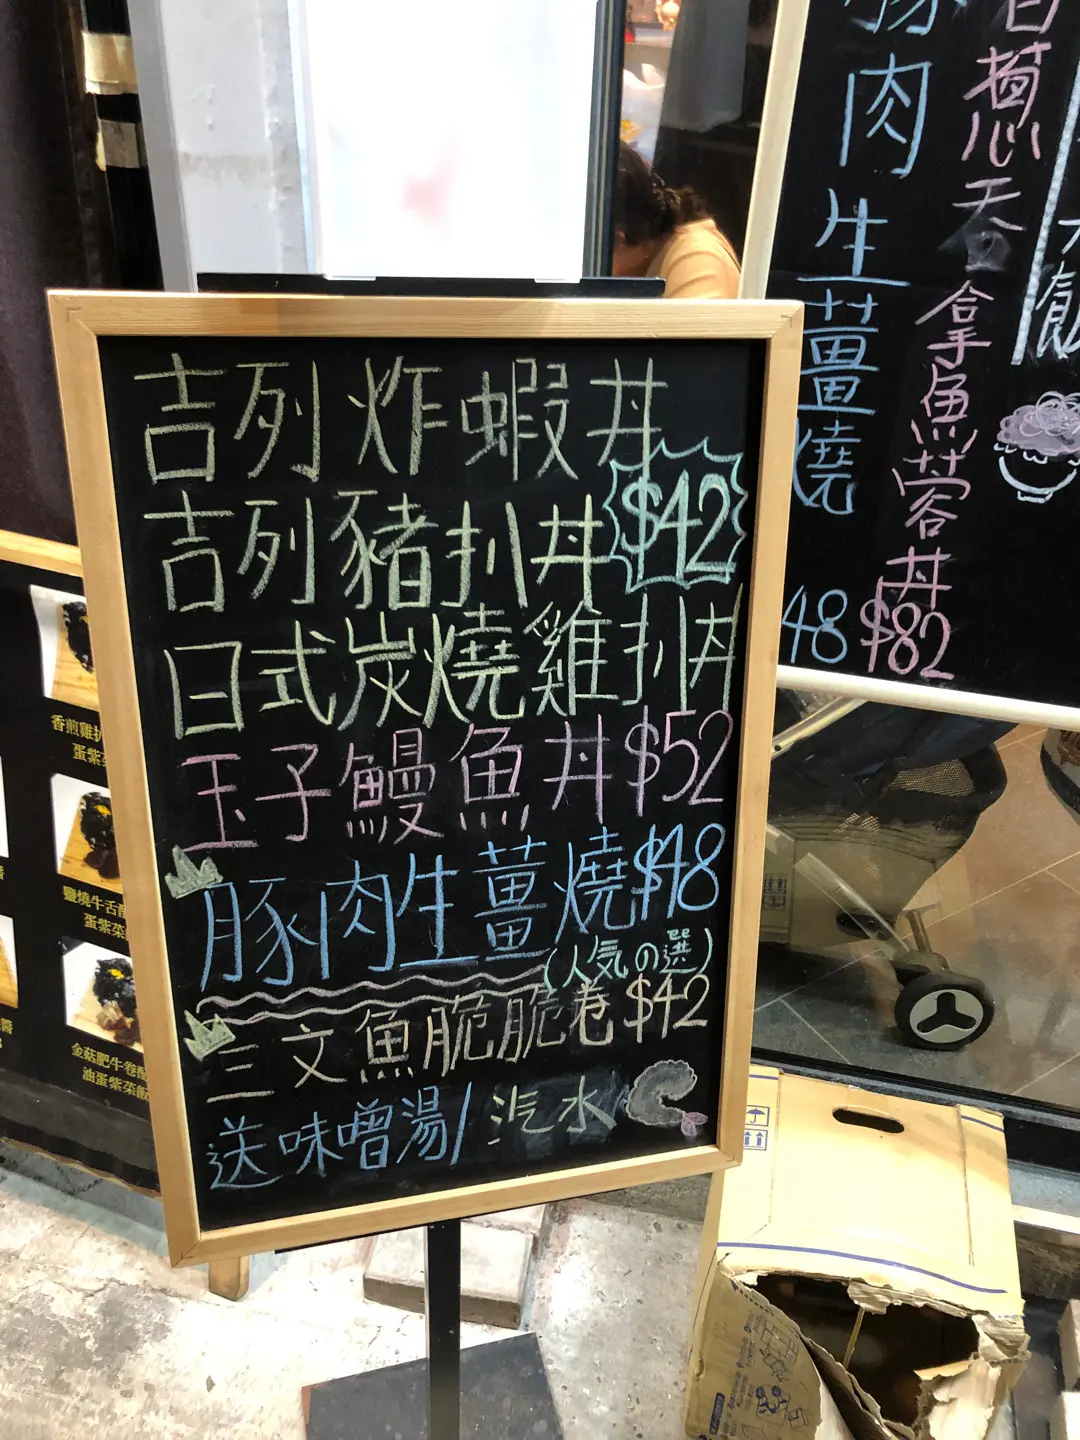 吉列炸蝦丼
吉列豬扒丼 $42
日式炭燒雞扒丼
玉子鰻魚丼 $52
豚肉生薑燒 $48
(人気の選)
三文魚脆脆卷 $42
送味噌湯/汽水
豚肉生薑燒
48
吞拿魚蓉丼
$82
飯
香煎雞扒
蛋紫菜
鹽燒牛舌
蛋紫菜
金菇肥牛卷
油蛋紫菜飯